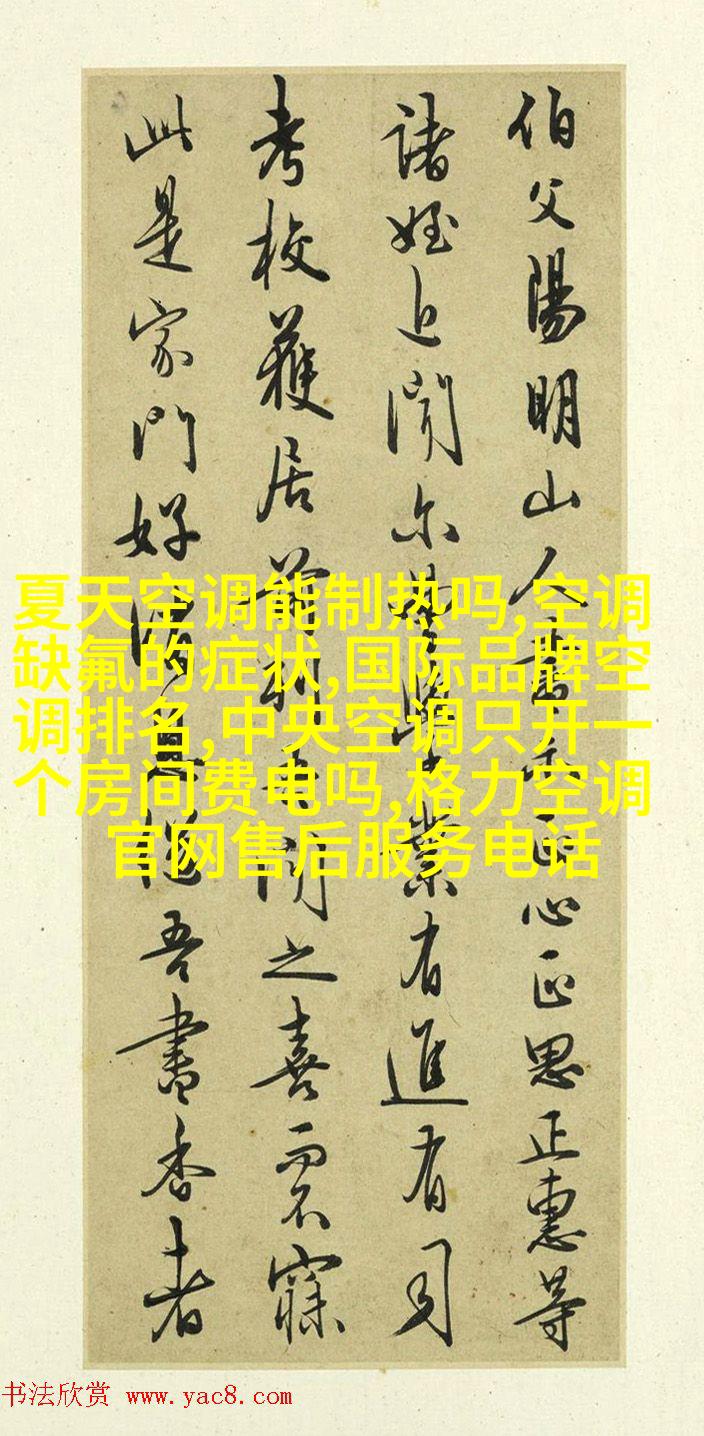 伯父陽明山人書示正心正思正惠等
諸姪近聞尔曹學業有進有司
考校獲居前列吾聞之喜而不寐
此是家門好消息繼吾書香者
夏天空调能制热吗,空调
缺氟的症状,国际品牌空
调排名,中央空调只开一
个房间费电吗,格力空调
官网售后服务电话
书法欣赏 www.yac8.com